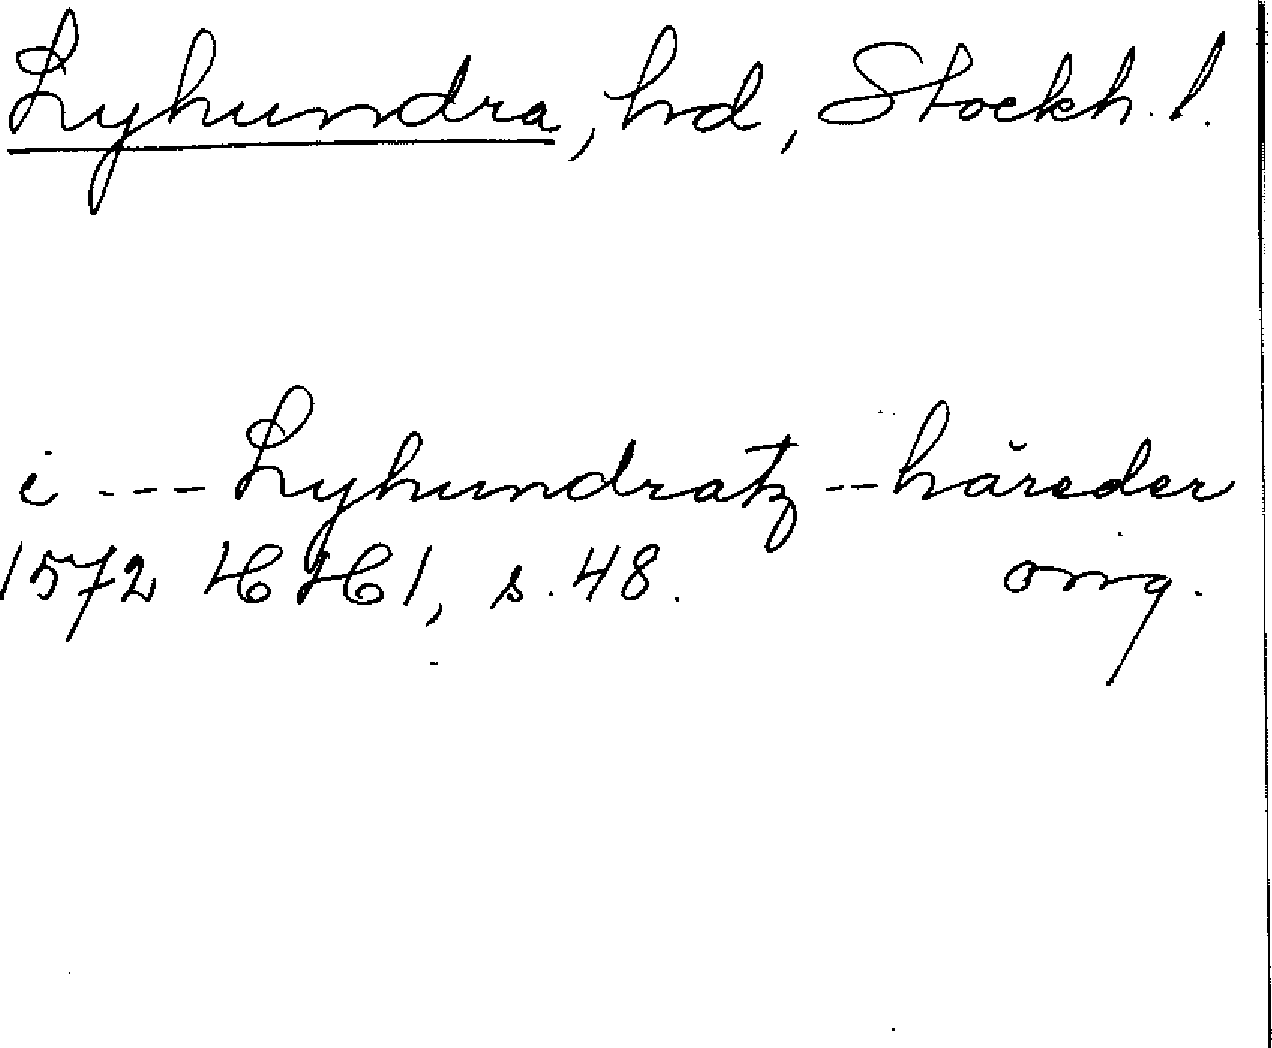 Lyhundra, hd, Stockh. l.
i --- Lyhundratz -- häreder
1572 HH 1, s. 48. orig.